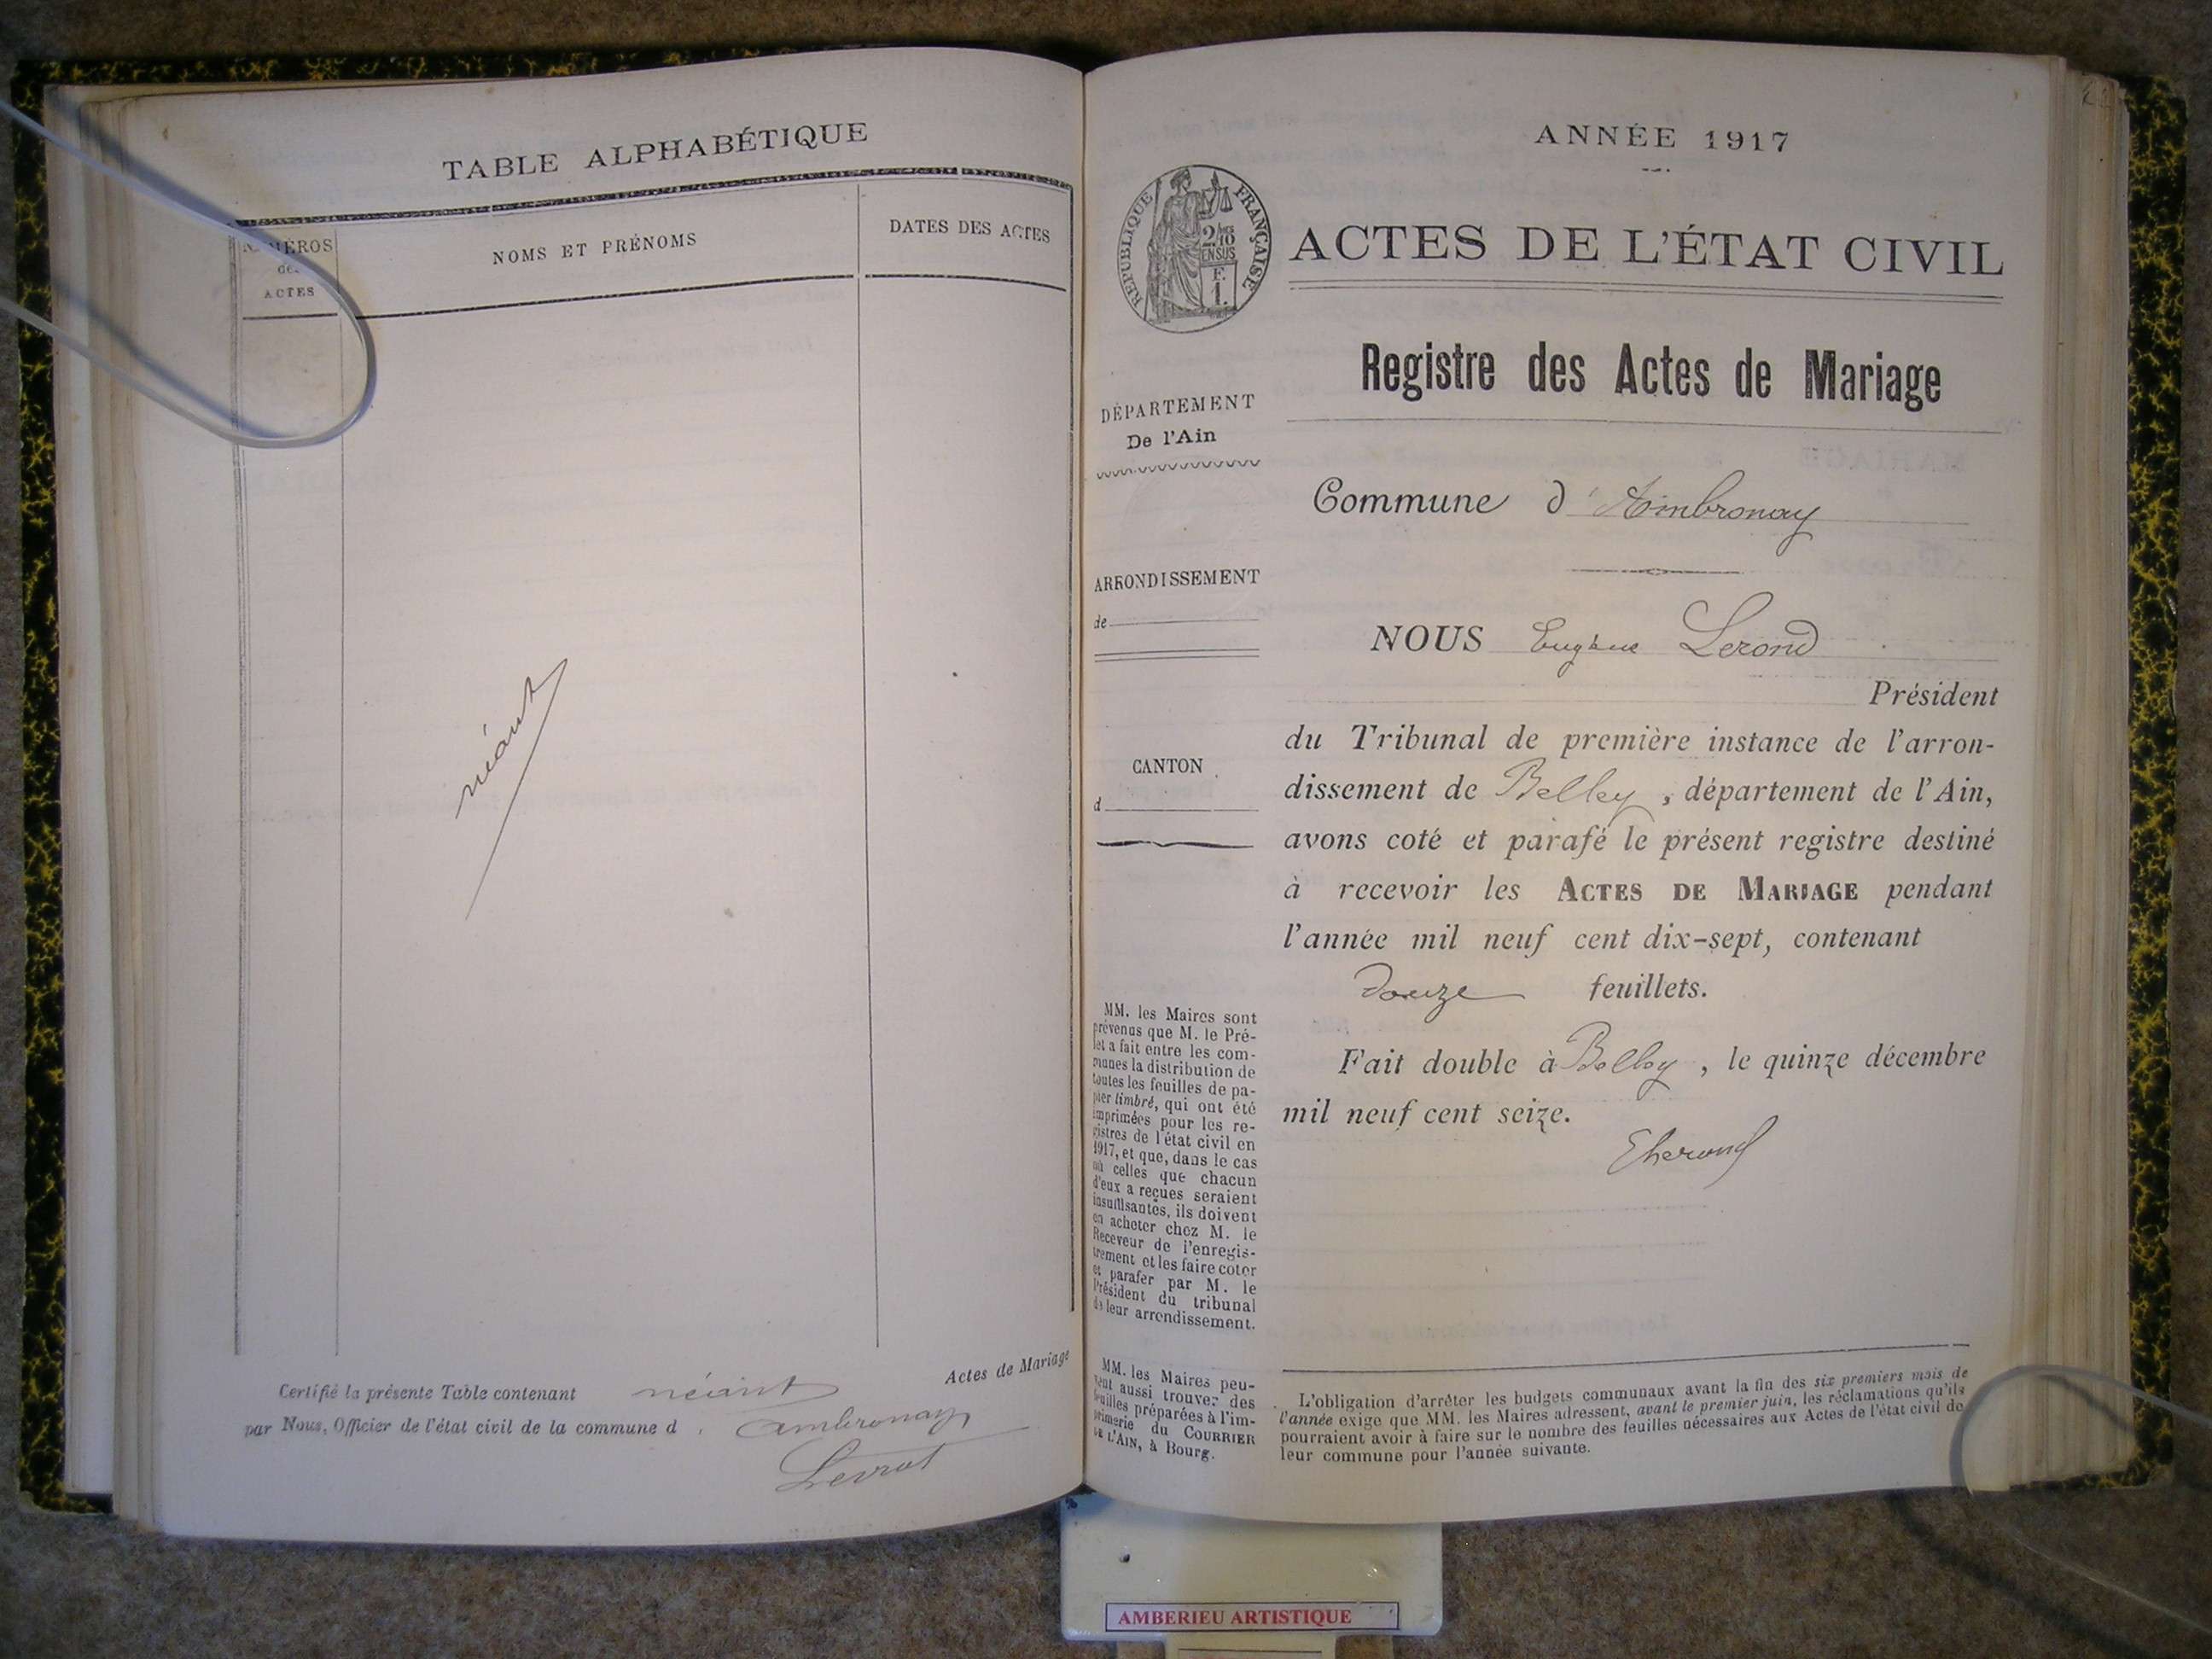 TABLE ALPHABÉTIQUE
NUMÉROS
des
ACTES
NOMS ET PRÉNOMS
DATES DES ACTES
néant
Actes de Mariage
Certifié la présente Table contenant néant
par Nous, Officier de l'état civil de la commune d Ambronay
Levrat
ANNÉE 1917
REPUBLIQUE FRANÇAISE
2/10
EN SUS
F.
1.
ACTES DE L'ÉTAT CIVIL
Registre des Actes de Mariage
DÉPARTEMENT
De l'Ain
Commune d'Ambronay
ARRONDISSEMENT
de
NOUS Eugène Lerond
Président
du Tribunal de première instance de l'arron-
dissement de Belley, département de l'Ain,
avons coté et parafé le présent registre destiné
à recevoir les ACTES DE MARIAGE pendant
l'année mil neuf cent dix-sept, contenant
douze feuillets.
Fait double à Belley, le quinze décembre
mil neuf cent seize.
CANTON
d
MM. les Maires sont
prévenus que M. le Pré-
fet a fait entre les com-
munes la distribution de
toutes les feuilles de pa-
pier timbré, qui ont été
imprimées pour les re-
gistres de l'état civil en
1917, et que, dans le cas
où celles que chacun
d'eux a reçues seraient
insuffisantes, ils doivent
en acheter chez M. le
Receveur de l'enregis-
trement et les faire coter
et parafer par M. le
Président du tribunal
de leur arrondissement.
MM. les Maires peu-
vent aussi trouver des
feuilles préparées à l'im-
primerie du COURRIER
DE L'AIN, à Bourg.
L'obligation d'arrêter les budgets communaux avant la fin des six premiers mois de
l'année exige que MM. les Maires adressent, avant le premier juin, les réclamations qu'ils
pourraient avoir à faire sur le nombre des feuilles nécessaires aux Actes de l'état civil de
leur commune pour l'année suivante.
AMBERIEU ARTISTIQUE